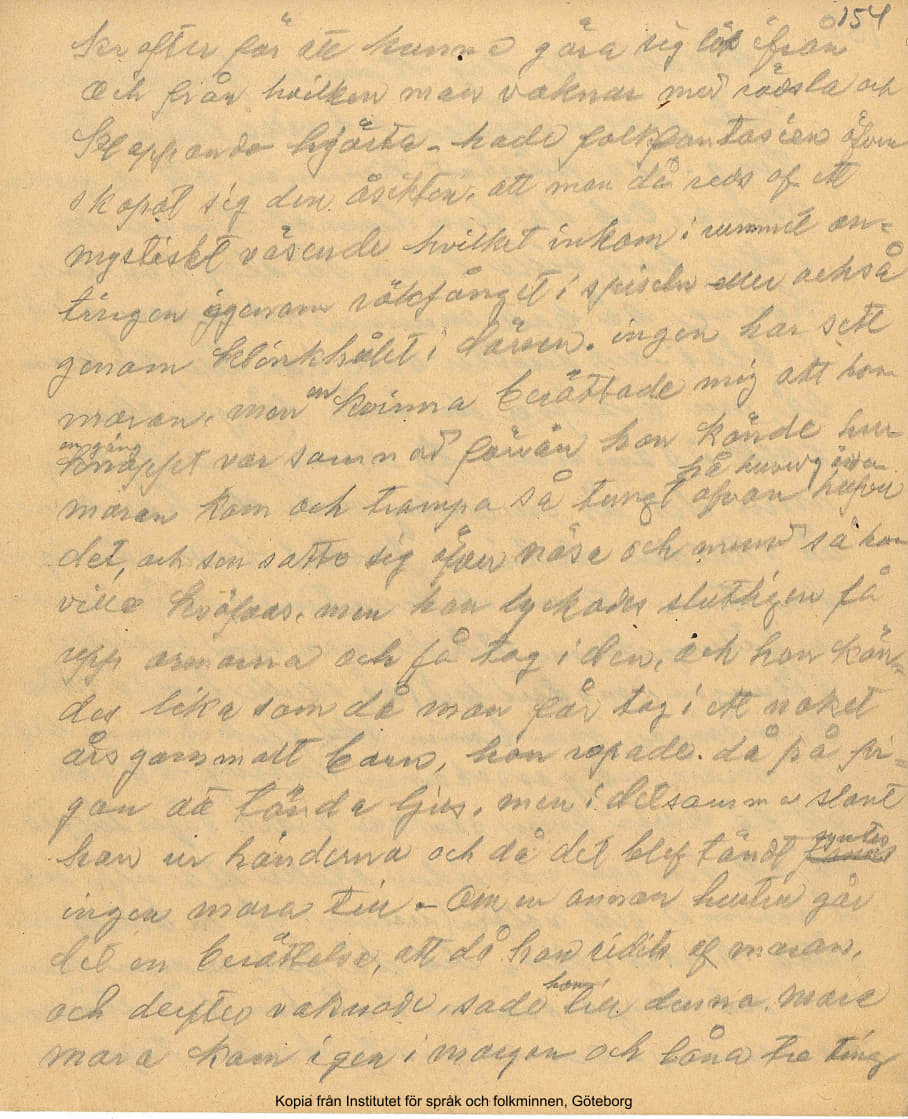 154
krafter för att kunna göra sig lös ifrån
och från hvilken man vaknar med rädsla och
klappande hjärta - hade folkfantasien äfven
skapat sig den åsikten, att man då reds af ett
mystiskt väsende hvilket inkom i rummet an-
tingen igenom rökfånget i spiseln eller också
genom klinkhålet i dörren. ingen har sett
maran, men en kvinna berättade mig att hon
engång
knappt var somnad förrän hon kände hur
på huvudgärden
maran kom och trampa så tungt ofvan
det, och sen satte sig öfver näsa och mund så hon
ville kväfvas, men hon lyckades slutligen få
upp armarna och få tag i den, och hon kän-
des lika som då man får tag i ett naket
årsgammalt barn, hon ropade då på pi-
gan att tända ljus, men i detsamma slant
han ur händerna och då det blef tändt syntes
ingen mara till - Om en annan hustru går
det en berättelse, att då hon ridits af maran,
och derefter vaknade, sade hon till denna, mara
mara kom igen i morgon och låna tre ting
Kopia från Institutet för språk och folkminnen, Göteborg